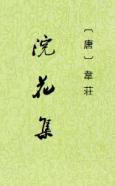 〔唐〕韋莊
浣花集